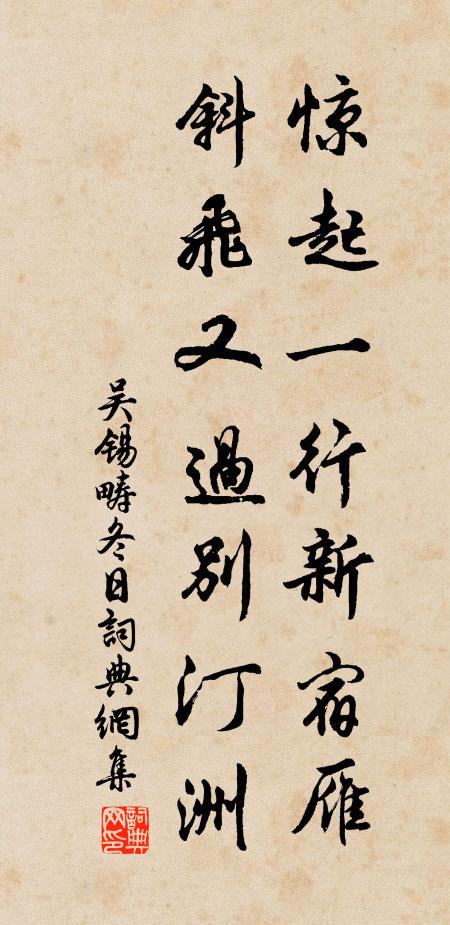 惊起一行新宿雁
斜飛又過别汀洲
吴錫疇冬日詞典網集
詞典网印